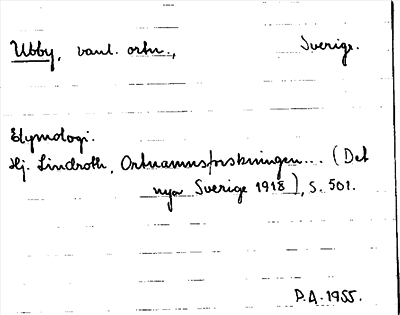 Ubby, vanl. ortn., Sverige.
Etymologi.
Hj. Lindroth, Ortnamnsforskningen... (Det
nya Sverige 1918), s. 501.
P.A. 1955.